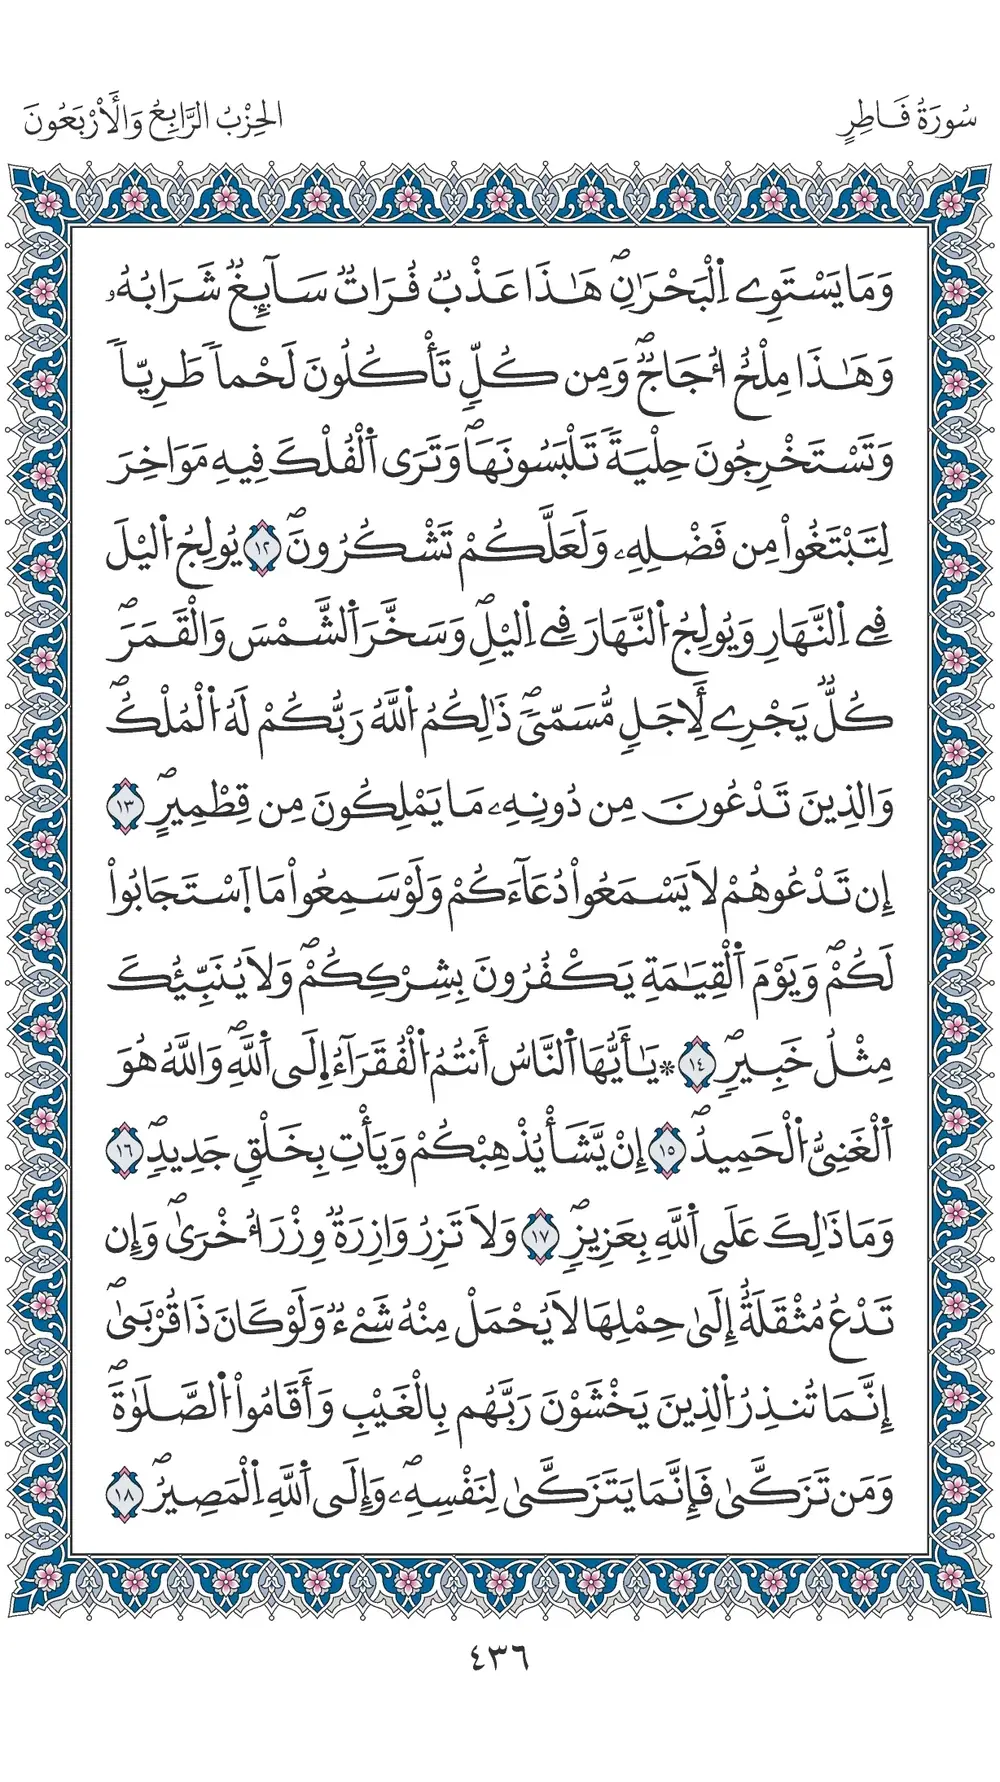 سُورَةُ فَاطِرٍ
الحِزْبُ الرَّابِعُ وَالْأَرْبَعُونَ
وَمَا يَسْتَوِے اِ۬لْبَحْرَٰنِۖ هَٰذَا عَذْبٞ فُرَاتٞ سَآئِغٞ شَرَابُهُۥ
وَهَٰذَا مِلْحٌ اُجَاجٞۖ وَمِن كُلّٖ تَأْكُلُونَ لَحْماٗ طَرِيّاٗ
وَتَسْتَخْرِجُونَ حِلْيَةٗ تَلْبَسُونَهَاۖ وَتَرَى اَ۬لْفُلْكَ فِيهِ مَوَاخِرَ
لِتَبْتَغُواْ مِن فَضْلِهِۦ وَلَعَلَّكُمْ تَشْكُرُونَۖ ١٢ يُولِجُ اُ۬ليْلَ
فِے اِ۬لنَّهَارِ وَيُولِجُ اُ۬لنَّهَارَ فِے اِ۬ليْلِۖ وَسَخَّرَ اَ۬لشَّمْسَ وَالْقَمَرَۖ
كُلّٞ يَجْرِے لِأَجَلٖ مُّسَمّىٗۖ ذَٰلِكُمُ اُ۬للَّهُ رَبُّكُمْ لَهُ اُ۬لْمُلْكُۖ
وَالذِينَ تَدْعُونَ مِن دُونِهِۦ مَا يَمْلِكُونَ مِن قِطْمِيرٍۖ ١٣
إِن تَدْعُوهُمْ لَا يَسْمَعُواْ دُعَآءَكُمْ وَلَوْ سَمِعُواْ مَا اَ۪سْتَجَابُواْ
لَكُمْۖ وَيَوْمَ اَ۬لْقِيَٰمَةِ يَكْفُرُونَ بِشِرْكِكُمْۖ وَلَا يُنَبِّئُكَ
مِثْلُ خَبِيرٖۖ ١٤ * يَٰأَيُّهَا اَ۬لنَّاسُ أَنتُمُ اُ۬لْفُقَرَآءُ اِ۪لَى اَ۬للَّهِۖ وَاللَّهُ هُوَ
اَ۬لْغَنِيُّ اُ۬لْحَمِيدُۖ ١٥ إِنْ يَّشَأْ يُذْهِبْكُمْ وَيَأْتِ بِخَلْقٖ جَدِيدٖۖ ١٦
وَمَا ذَٰلِكَ عَلَى اَ۬للَّهِ بِعَزِيزٖۖ ١٧ وَلَا تَزِرُ وَازِرَةٞ وِزْرَ أُخْرَىٰۖ وَإِن
تَدْعُ مُثْقَلَةٌ إِلَىٰ حِمْلِهَا لَا يُحْمَلْ مِنْهُ شَےْءٞ وَلَوْ كَانَ ذَا قُرْبَىٰۖ
إِنَّمَا تُنذِرُ اُ۬لذِينَ يَخْشَوْنَ رَبَّهُم بِالْغَيْبِ وَأَقَامُواْ اُ۬لصَّلَوٰةَۖ
وَمَن تَزَكَّىٰ فَإِنَّمَا يَتَزَكَّىٰ لِنَفْسِهِۦۖ وَإِلَى اَ۬للَّهِ اِ۬لْمَصِيرُۖ ١٨
٤٣٦